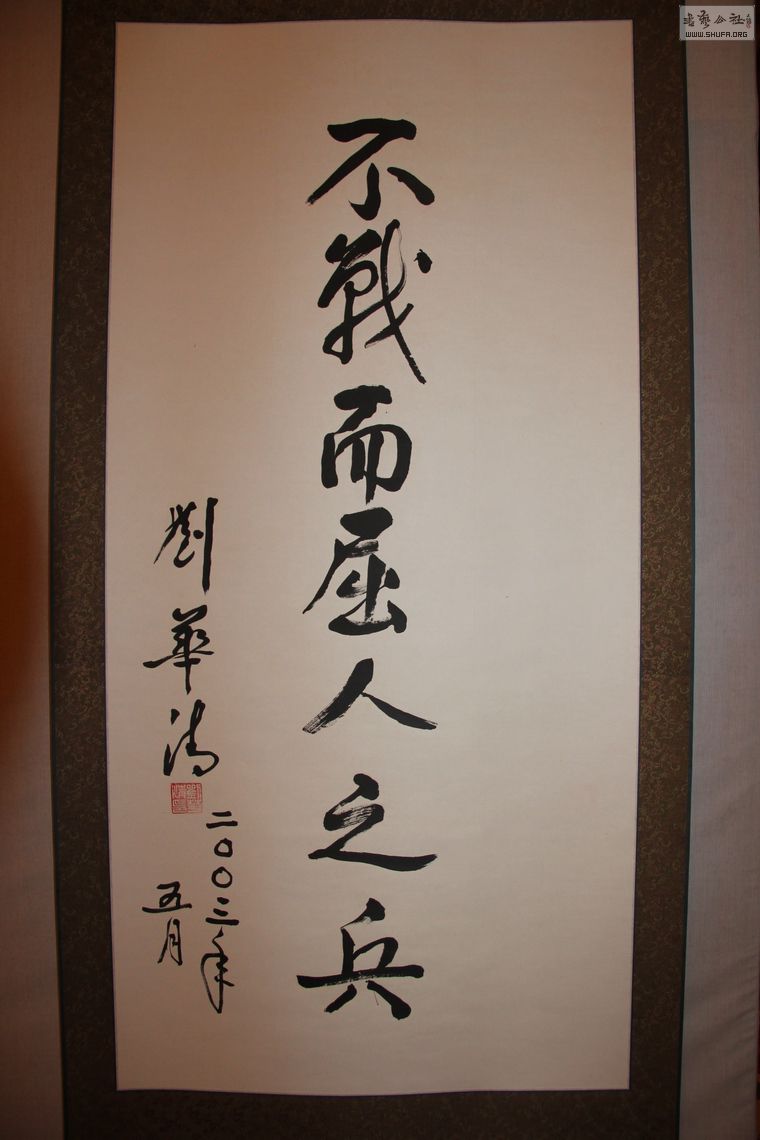 不戰而屈人之兵
劉華清
二〇〇三年
五月
WWW.SHUFA.ORG